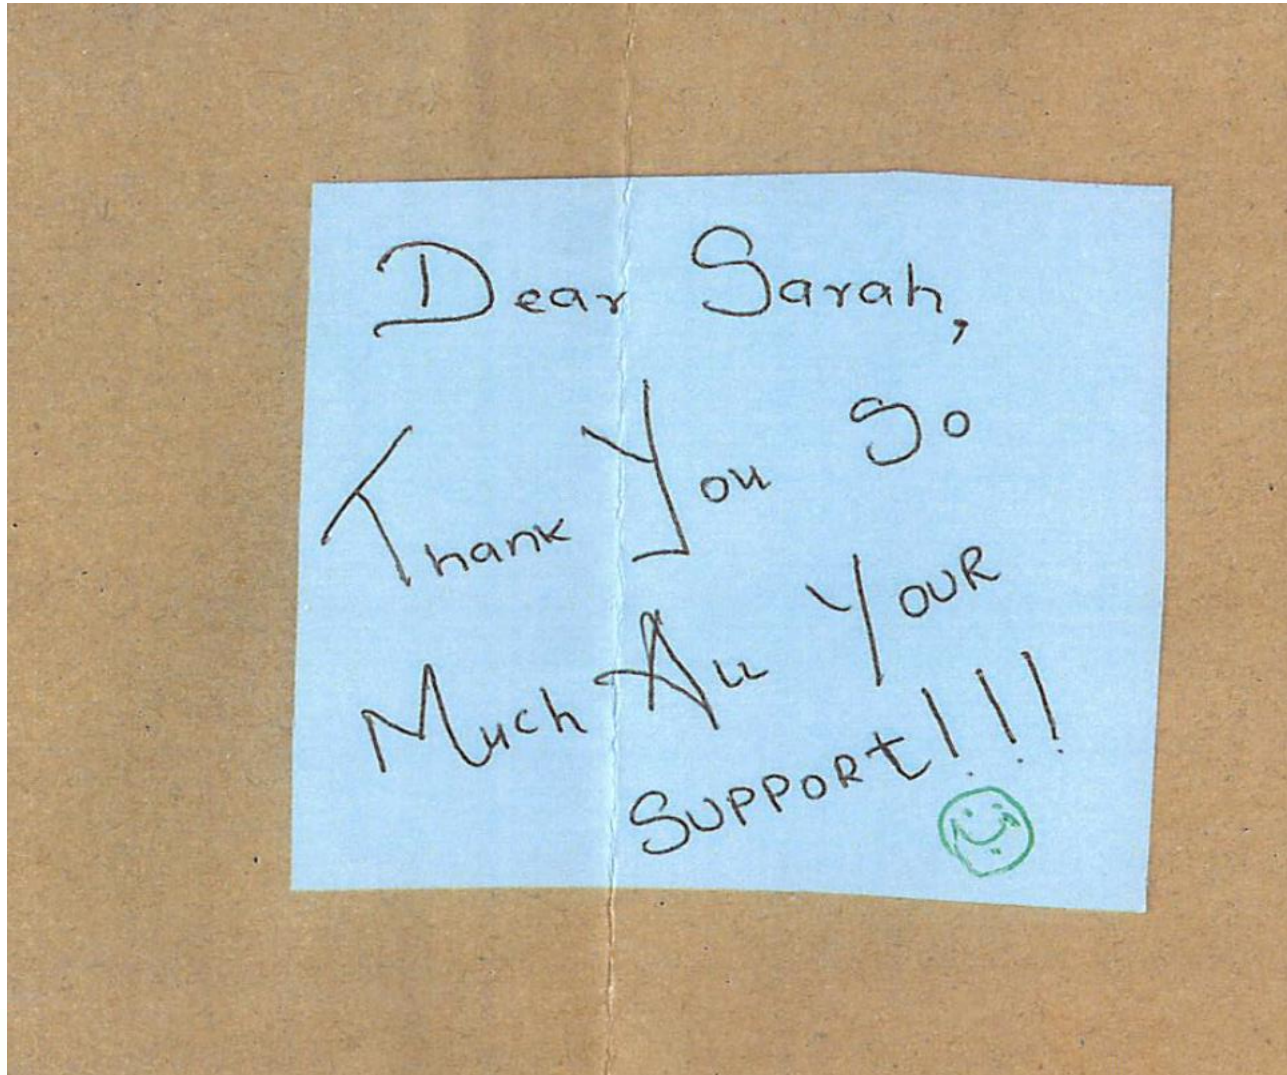 Dear Sarah,
Thank You So
Much All Your
SUPPORt!!!